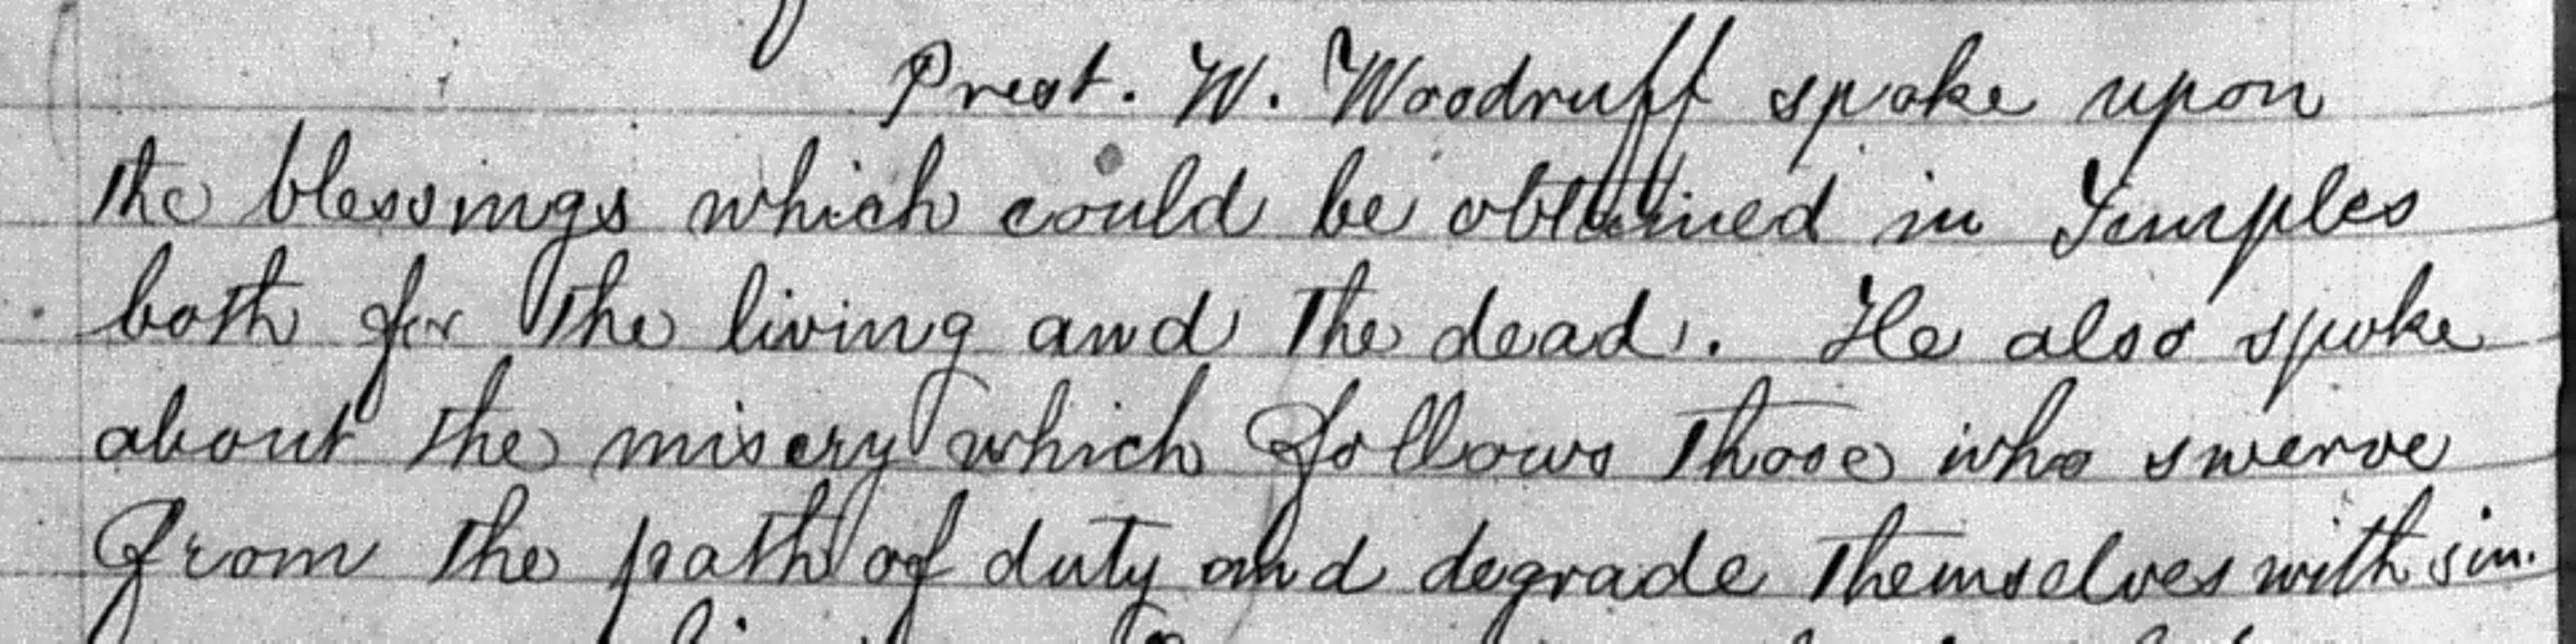 Prest. W. Woodruff spoke upon
the blessings which could be obtained in Temples
both for the living and the dead. He also spoke
about the misery which follows those who swerve
from the path of duty and degrade themselves with sin.